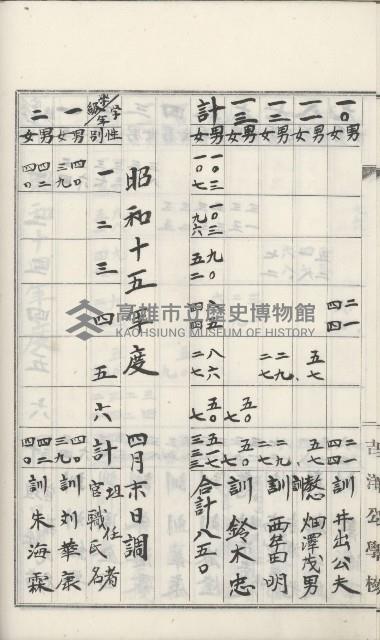 一〇 男 二一 二一 訓 井出公夫
女 四四 四四
一一 男 五七 五七 訓 畑澤茂男
女
一二 男 二九 二九 訓 西牟田明
女 二七 二七
一三 男 五〇 五〇 訓 鈴木忠
女 七 七
計 男 一〇三 一〇三 九〇 八六 五〇 五一七 合計八五〇
女 一〇七 九六 五二 四四 二七 七 三三三
昭和十五年度 四月末日調
学年 学級 性別 一 二 三 四 五 六 計 担任者 官職氏名
一 男 四〇 四〇 訓 劉華康
女 三九 三九
二 男 四二 四二 訓 朱海霖
女 四〇 四〇
高雄市立歷史博物館
KAOHSIUNG MUSEUM OF HISTORY
公學校